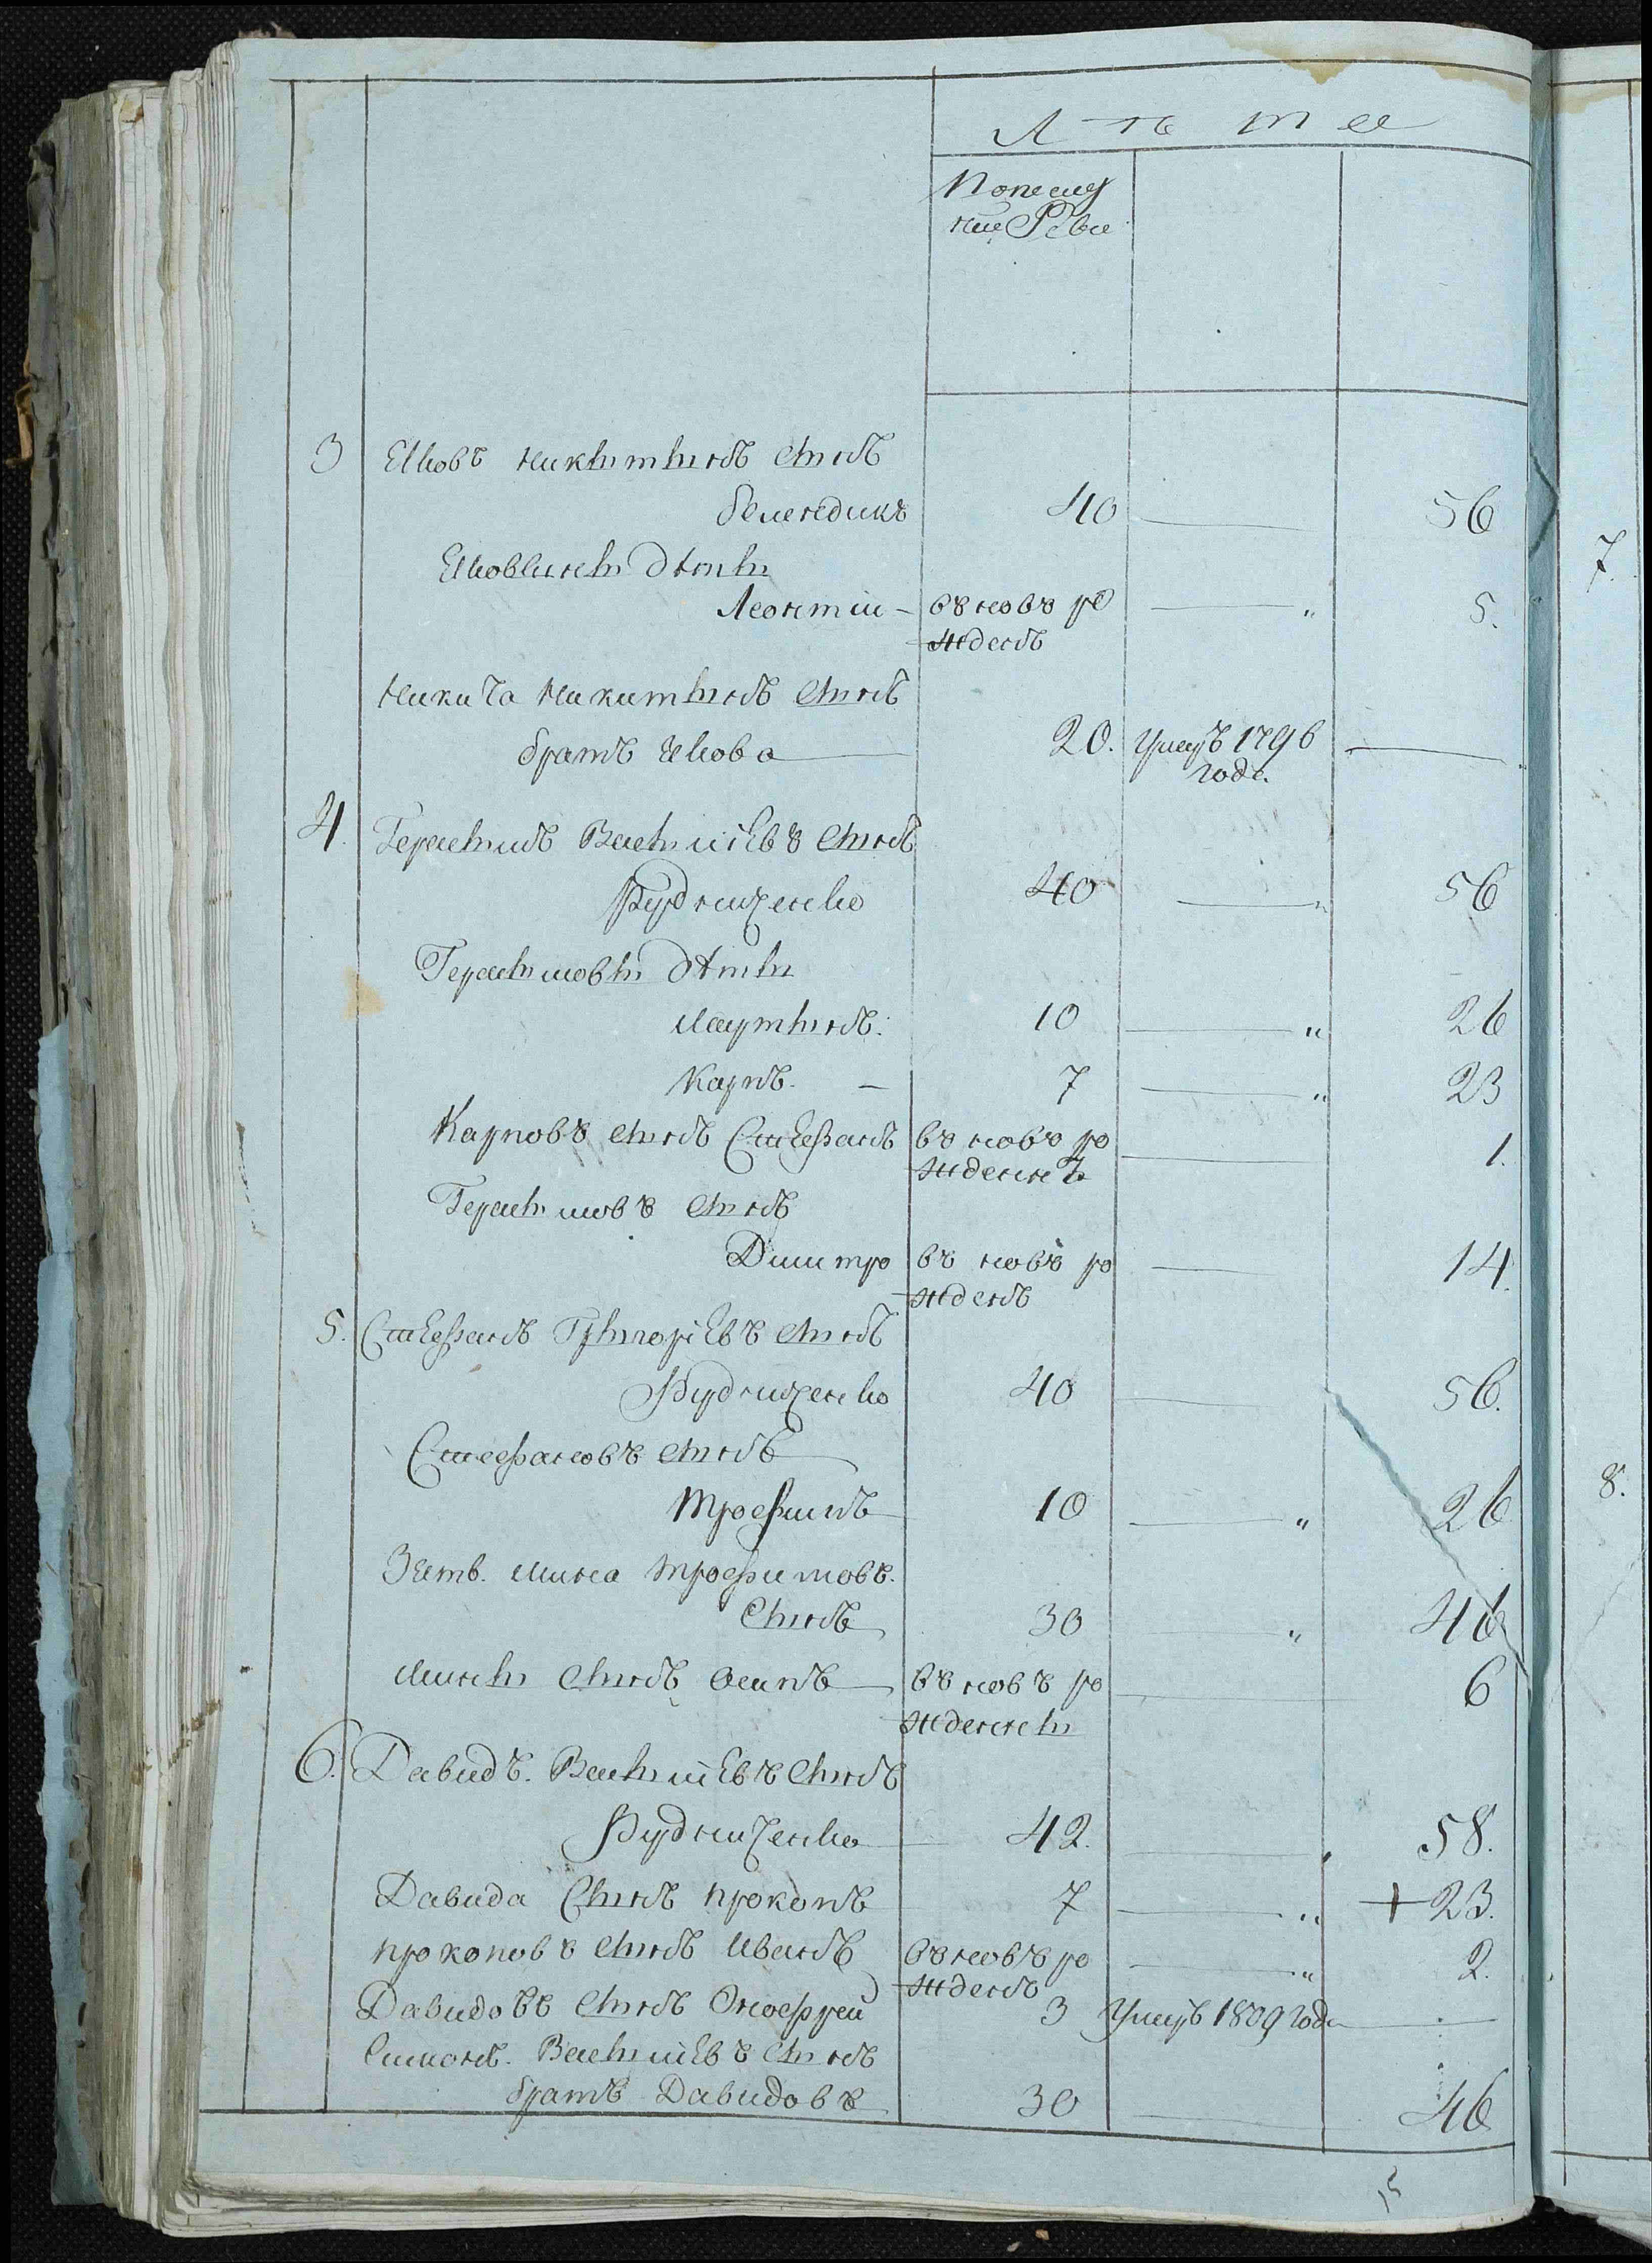 Лѣта
Попешу
ние Реви
3 Яковъ никитинъ сынъ
40 56
Яковлини дѣти
Леонтии въновѣ ро 5.
жденъ
никита никитинъ сынъ
братъ Якова 20. умеръ 1796
годѣ.
4. Герасимъ Василіевъ сынъ
Бурдниченко 40 56
Герасимови дѣти
Мартинъ. 10 26
Карпъ. 7 23
Карповъ синъ Стефанъ въ новѣ ро 1.
жденнъ
Герасимовъ синъ
Димитро въ новѣ ро 14.
жденъ
5. Стефанъ Григоріевъ синъ
Бурдниченко 40 56.
Стефановъ синъ
трофимъ 10 26
Зять. мина трофимовъ.
Синъ 30 46
мини синъ осипъ въ новѣ ро 6
жденни
6. Давидъ. Василіевъ Синъ
Бурдниченко 42. 58.
Давида Синъ прокопъ 7 + 23.
прокоповъ синъ иванъ въ новѣ ро 2.
жденъ
Давидовъ Синъ Онофрей 3 умеръ 1809 года
Симонъ. Василіевъ синъ
братъ Давидовъ 30 46
7.
8.